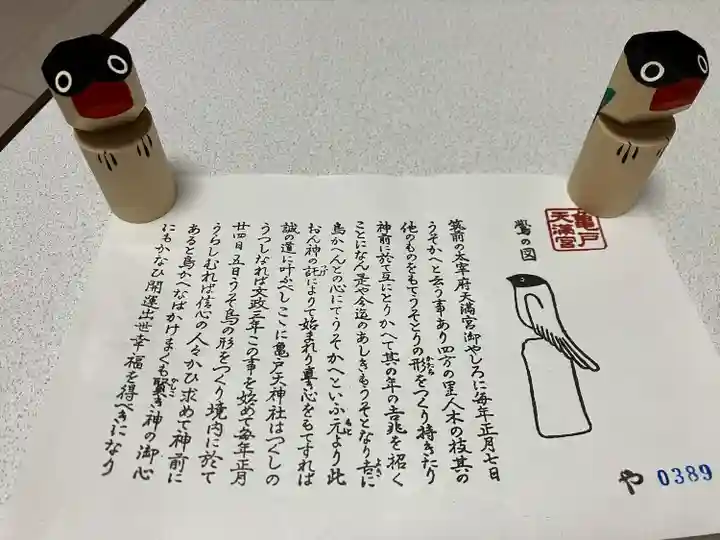 亀戸
天満宮
鷽の図
筑前の太宰府天満宮御やしろに毎年正月七日
うそかへと云う事あり四方の里人木の枝其の
他のものをもてうそとりの形をつくり持きたり
かたち
神前に於て互にとりかへて其の年の吉兆を招く
ことになん是や今迄のあしきもうそとなり吉に
よき
鳥かへんとの心にてうそかへといふ元より此
もと
おん神の託によりて始まれり真心をもてすれば
誠の道に叶ふべしここに亀戸天神社はつくしの
うつしなれば文政三年この事を始めて毎年正月
廿四日五日うそ鳥の形をつくり境内に於て
うらしむれば信心の人々かひ求めて神前に
あると鳥かへなばかけまくも賢き神の御心
かしこ
にもかなひ開運出世幸福を得べきになり
や 0389